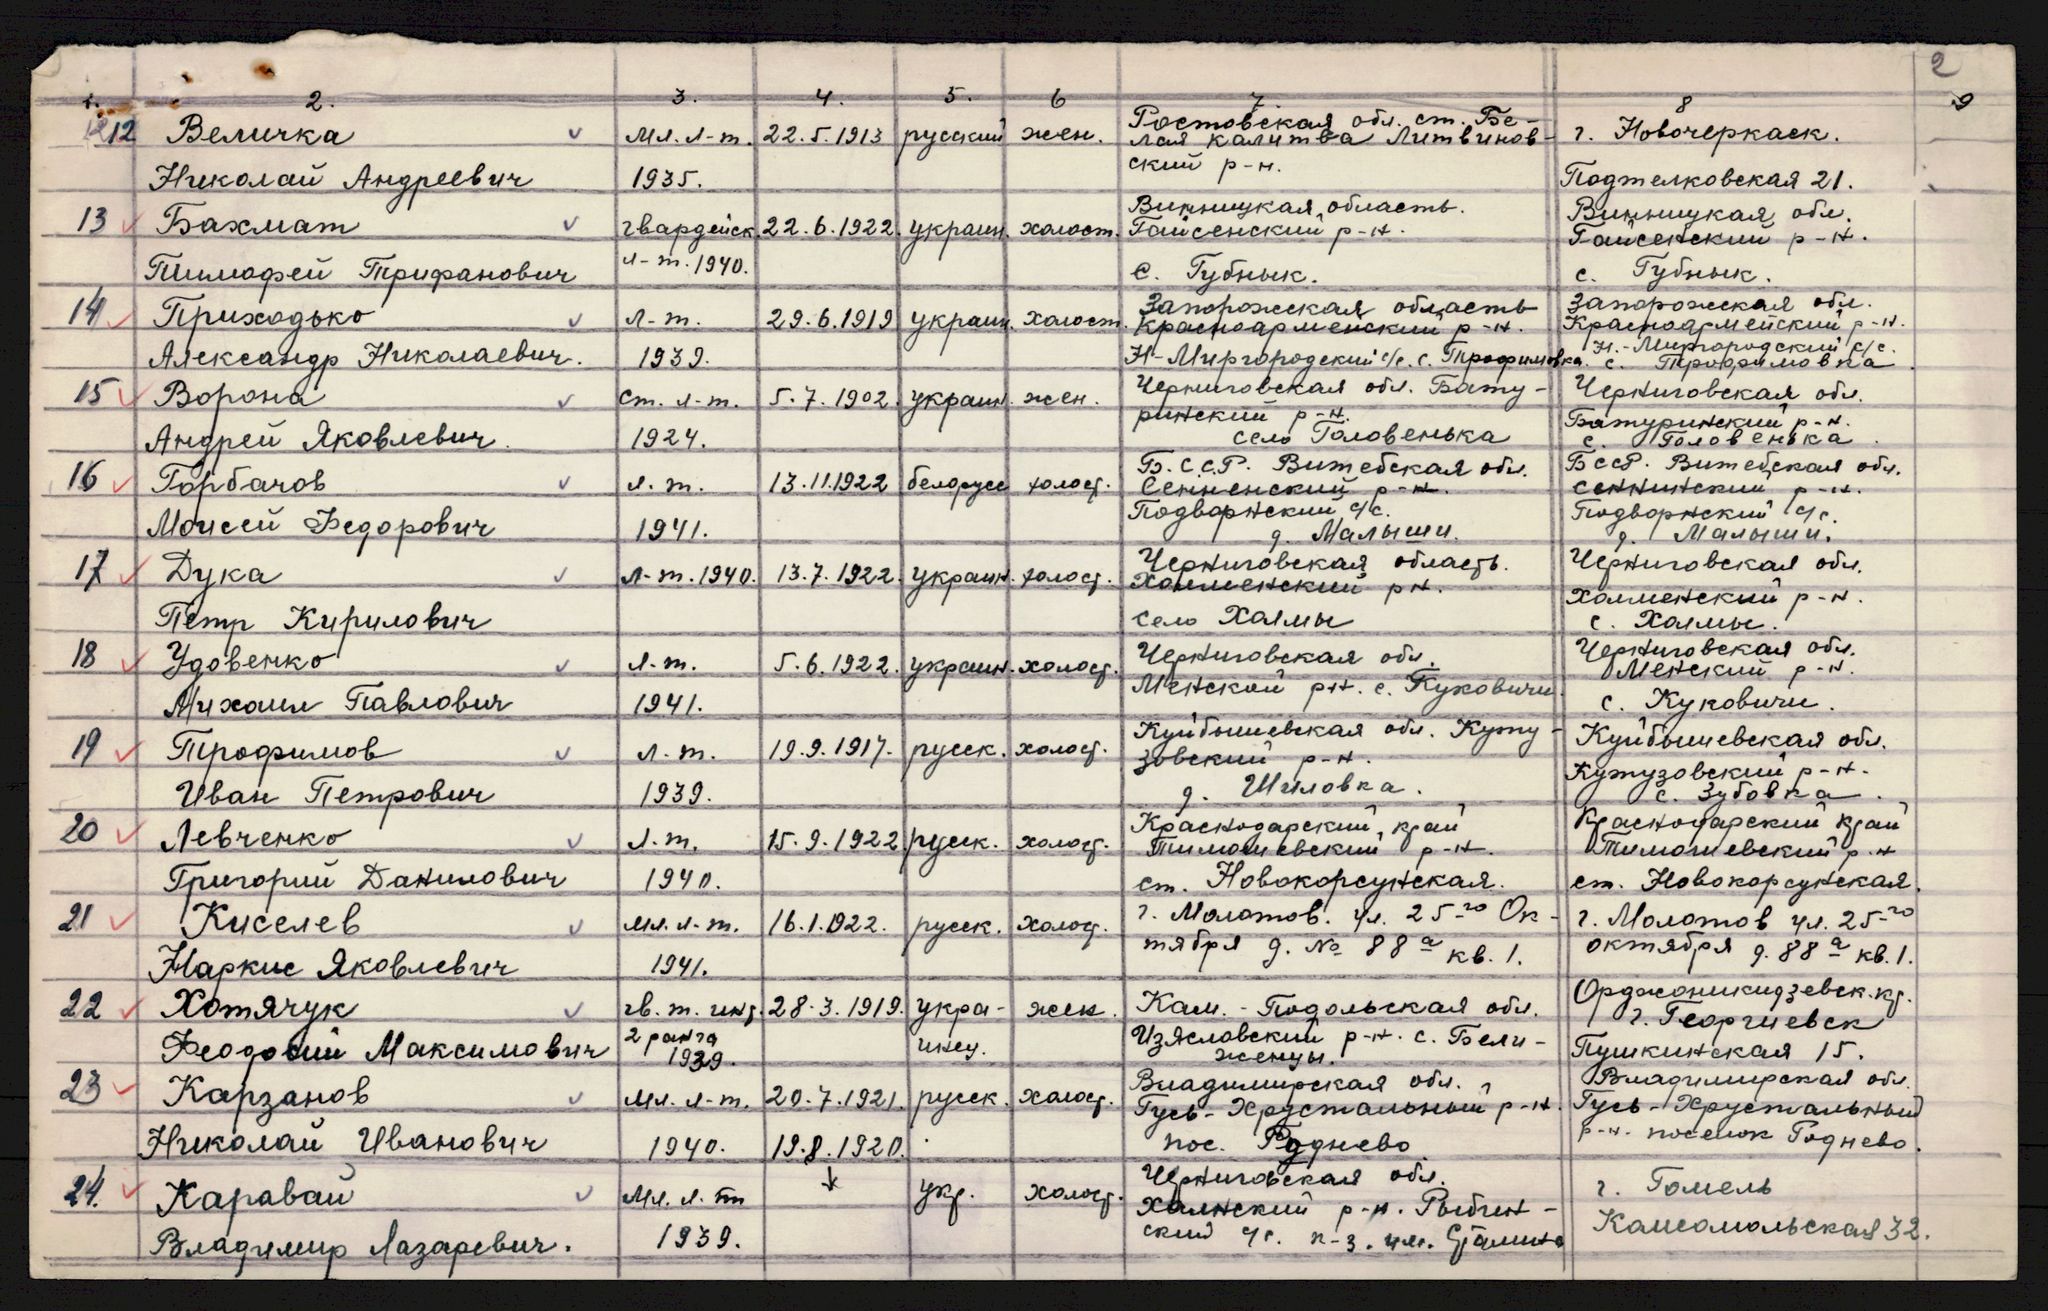 2
1. 2. 3. 4. 5. 6 7 8 9
12 Величка мл. л-т. 22.5.1913 русский жен. Ростовская обл. ст. Бе- г. Новочеркаск.
лая калитва Литвинов-
ский р-н.
Николай Андреевич 1935. Подтелковская 21.
13 Бахмат гвардейск. 22.6.1922. украин. холост. Винницкая область. Винницкая обл.
Гайсенский р-н. Гайсенский р-н.
Тимофей Трифанович л-т. 1940. с. Губнык. с. Губнык.
14 Приходько л-т. 29.6.1919 украин. холост. Запорожская область Запорожская обл.
Красноармейский р-н. Красноармейский р-н.
Александр Николаевич. 1939. Н-Миргородский с/с. с. Трофимовка. Н.-Миргородский с/с.
с. Трофимовка
15 Ворона ст. л-т. 5.7.1902. украин. жен. Черниговская обл. Бату- Черниговская обл.
ринский р-н. Батуринский р-н.
Андрей Яковлевич. 1924. село Головенька с. Головенька.
16 Горбачов л.т. 13.11.1922 белорусс холост. Б.С.С.Р. Витебская обл. БССР. Витебская обл.
Сенненский р-н. сеннинский р-н.
Моисей Федорович 1941. Подворнский с/с. Подворнский с/с.
д. Малыши. д. Малыши.
17 Дука л-т. 1940. 13.7.1922. украин. холост. Черниговская область. Черниговская обл.
Холменский рн. Холменский р-н.
Петр Кирилович село Холмы с. Холмы.
18 Удовенко л-т. 5.6.1922. украин. холост. Черниговская обл. Черниговская обл.
Менский р-н.
Михаил Павлович 1941. Менской рн. с. Куковичи. с. Куковичи.
19 Трофимов л-т. 19.9.1917. русск. холост. Куйбышевская обл. Куту- Куйбышевская обл.
зовский р-н. Кутузовский р-н.
Иван Петрович 1939. д. Шиловка. с. Зубовка.
20 Левченко л.т. 15.9.1922 русск. холост. Краснодарский край Краснодарский край
Тимошевский р-н. Тимошевский р-н
Григорий Данилович 1940. ст. Новокорсунская. ст. Новокорсунская.
21 Киселев мл. л-т. 16.1.1922. русск. холост. г. Молотов. ул. 25-го Ок- г. Молотов ул. 25-го
тября д. № 88а кв. 1. октября д. 88а кв. 1.
Наркис Яковлевич 1941.
22 Хотячук гв. т. инт. 28.3.1919. укра- жен. Кам.-Подольская обл. Орджоникидзевск. кр.
г. Георгиевск
Феодосий Максимович 2 ранга инец. Изяславский р-н. с. Бели- Пушкинская 15.
1939. женцы.
23 Карзанов мл. л-т. 20.7.1921. русск. холост. Владимирская обл. Владимирская обл.
Гусь-Хрустальный р-н. Гусь-Хрустальный
Николай Иванович 1940. 19.8.1920. пос. Роднево р-н. поселок Роднево.
24. Каравай мл. л-т укр. холост. Черниговская обл. г. Гомель
Холмский р-н. Рыбин-
Владимир Лазаревич. 1939. ский с/с. к-з. им. Сталина Комсомольская 32.